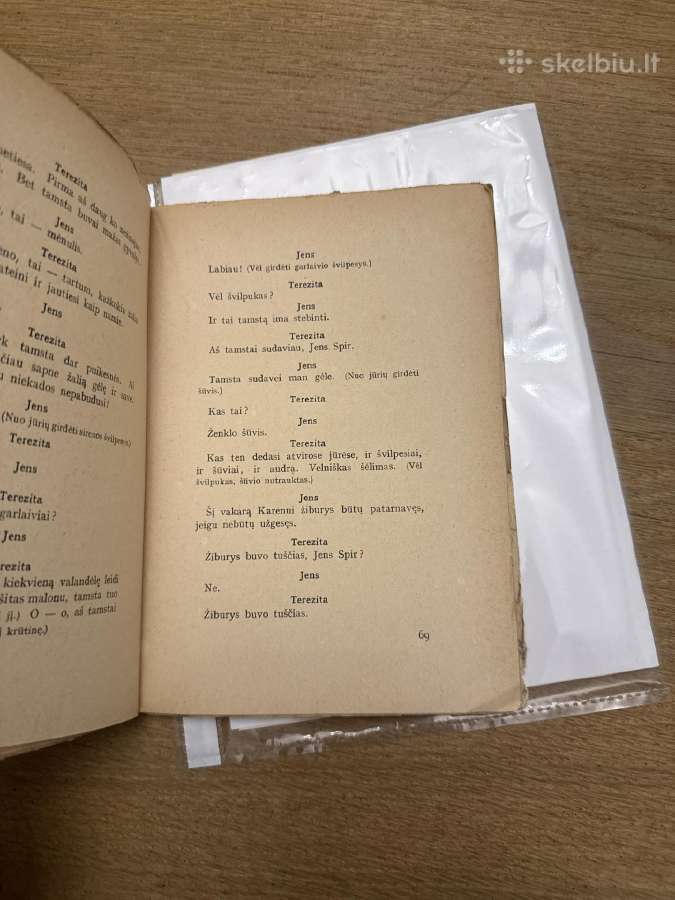 skelbiu.lt
Terezita
Pirma aš daug ko
Bet tamsta buvai
Jens
tai — mėnulis.
Terezita
tai — tartum, kaikokia
ateini ir jautiesi kaip name.
Jens
Terezita
tamsta dar puikesnės.
sapne žalią gėlę ir
niekados nepabudusi!
Jens
(Nuo jūrių girdėti sirenos švilpesys)
Terezita
Jens
Terezita
garlaiviai?
Jens
kiekvieną valandėlę leidi
malonu, tamsta tuo
O — o, aš tamstai
krūtinę.)
Jens
Labiau! (Vėl girdėti garlaivio švilpesys.)
Terezita
Vėl švilpukas?
Jens
Ir tai tamstą ima stebinti.
Terezita
Aš tamstai sudaviau, Jens Spir.
Jens
Tamsta sudavei man gėle. (Nuo jūrių girdėti
šūvis.)
Terezita
Kas tai?
Jens
Ženklo šūvis.
Terezita
Kas ten dedasi atvirose jūrėse, ir švilpesiai,
ir šūviai, ir audrą. Velniškas šėlimas. (Vėl
švilpukas, šūvio nutrauktas.)
Jens
Šį vakarą Karenui žiburys būtų patarnavęs,
jeigu nebūtų užgesęs.
Terezita
Žiburys buvo tuščias, Jens Spir?
Jens
Ne.
Terezita
Žiburys buvo tuščias.
69